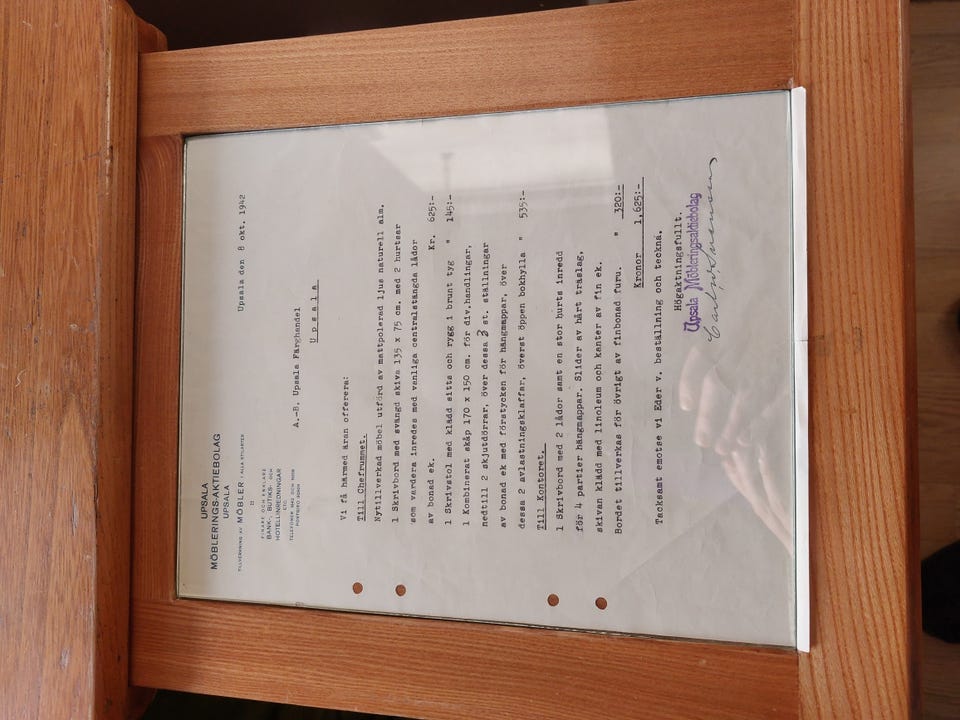 UPSALA
MÖBLERINGS-AKTIEBOLAG
UPSALA
TILLVERKNING AV MÖBLER I ALLA STILARTER
FINARE OCH ENKLARE
BANK-, BUTIKS- OCH
HOTELLINREDNINGAR
ETC.
TELEFONER
POSTGIRO
Upsala den 8 okt. 1942
A.-B. Upsala Färghandel
Upsala
Vi få härmed äran offerera:
Till Chefrummet.
Nytillverkad möbel utförd av mattpolerad ljus naturell alm.
1 Skrivbord med svängd skiva 135 x 75 cm. med 2 hurtsar
som vardera inredes med vanliga centralstängda lådor
av bonad ek. Kr. 625:-
1 Skrivstol med klädd sitts och rygg i brunt tyg " 145:-
1 Kombinerat skåp 170 x 150 cm. för div.handlingar,
nedtill 2 skjudörrar, över dessa 3 st. ställningar
av bonad ek med förstycken för hängmappar, över
dessa 2 avlastningsklaffar, överst öppen bokhylla " 535:-
Till Kontoret.
1 Skrivbord med 2 lådor samt en stor hurts inredd
för 4 partier hängmappar. Slider av hårt träslag,
skivan klädd med linoleum och kanter av fin ek.
Bordet tillverkas för övrigt av finbonad furu. " 320:-
Kronor 1,625:-
Tacksamt emotse vi Eder v. beställning och teckna.
Högaktningsfullt.
Upsala Möbleringsaktiebolag